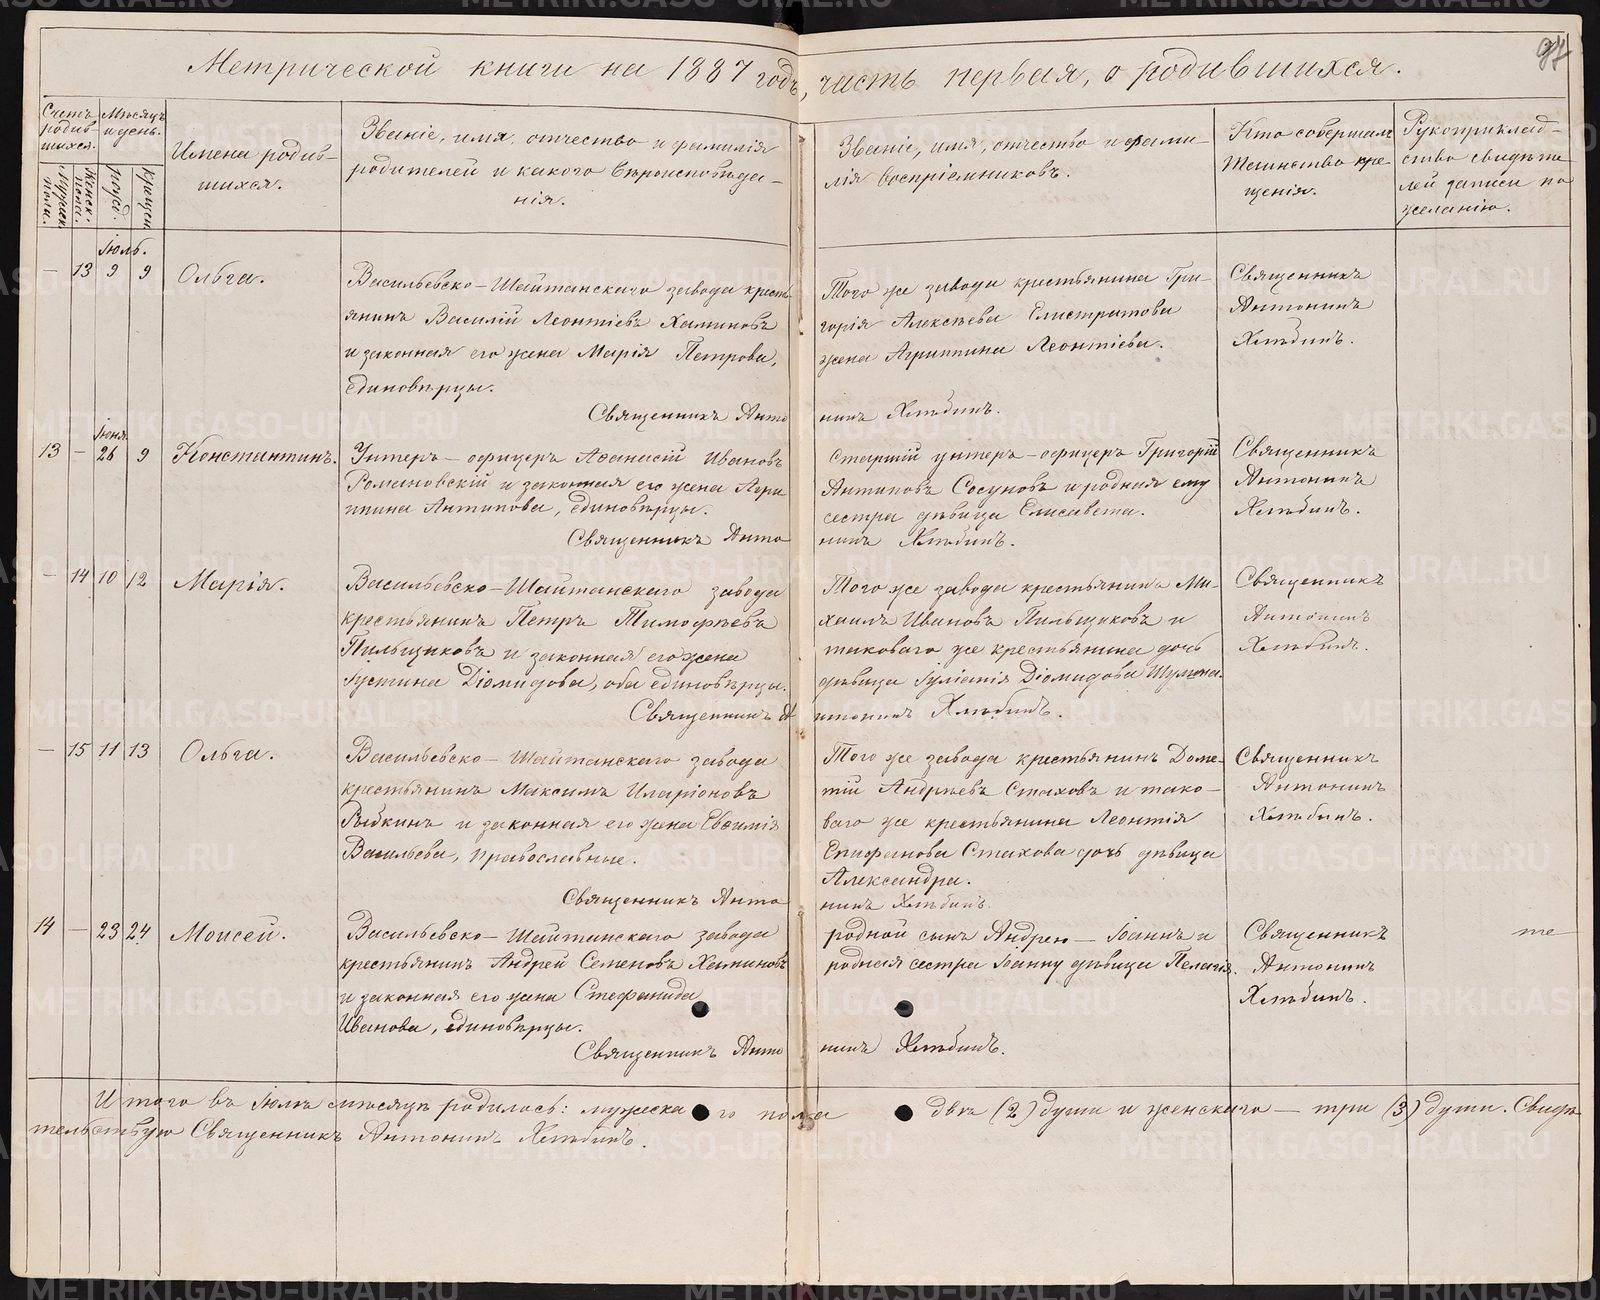 Метрической книги на 1887 годъ, часть первая, о родившихся.
97
Счетъ родив-
шихся.
Мѣсяцъ
и день.
Мужск. пола.
Женск. пола.
рожд.
крещен.
Имена родив-
шихся.
Званіе, имя, отчество и фамилія
родителей и какого вѣроисповѣда-
нія.
Званіе, имя, отчество и фами-
лія воспріемниковъ.
Кто совершалъ
Таинство кре
щенія.
Рукоприклад-
ство свидѣте
лей записи по
желанію.
Іюль.
— 13 9 9 Ольга.
Васильевско-Шайтанскаго завода кресть
янинъ Василій Леонтіевъ Халиновъ
и законная его жена Марія Петрова,
единовѣрцы.
Того же завода крестьянина Гри-
горія Алексѣева Елистратова
жена Агриппина Леонтіева.
Священникъ
Антонинъ
Хлѣбинъ.
Священникъ Анто нинъ Хлѣбинъ.
Іюня
13 — 26 9 Константинъ.
Унтеръ-офицеръ Аѳанасій Ивановъ
Романовскій и законная его жена Агри
ппина Антипова, единовѣрцы.
Старшій унтеръ-офицеръ Григорій
Антиповъ Сосуновъ и родная ему
сестра дѣвица Елисавета.
Священникъ
Антонинъ
Хлѣбинъ.
Священникъ Анто нинъ Хлѣбинъ.
— 14 10 12 Марія.
Васильевско-Шайтанскаго завода
крестьянинъ Петръ Тимофѣевъ
Пильщиковъ и законная его жена
Іустина Діомидова, оба единовѣрцы.
Того же завода крестьянинъ Ми-
хаилъ Ивановъ Пильщиковъ и
таковаго же крестьянина дочь
дѣвица Іуліанія Діомидова
Священникъ
Антонинъ
Хлѣбинъ.
Священникъ А нтонинъ Хлѣбинъ.
— 15 11 13 Ольга.
Васильевско-Шайтанскаго завода
крестьянинъ Максимъ Иларіоновъ
Рыбкинъ и законная его жена Евѳимія
Васильева, православные.
Того же завода крестьянинъ Доме-
тій Андрѣевъ Стаховъ и тако-
ваго же крестьянина Леонтія
Епифанова Стахова дочь дѣвица
Александра.
Священникъ
Антонинъ
Хлѣбинъ.
Священникъ Анто нинъ Хлѣбинъ.
14 — 23 24 Моисей.
Васильевско-Шайтанскаго завода
крестьянинъ Андрей Семеновъ Халиновъ
и законная его жена Стефанида
Иванова, единовѣрцы.
родной сынъ Андрею — Іоаннъ и
родная сестра Іоанну дѣвица Пелагія.
Священникъ
Антонинъ
Хлѣбинъ.
те
Священникъ Анто нинъ Хлѣбинъ.
Итого въ Іюлѣ мѣсяцѣ родилось: мужеска го пола двѣ (2) души и женскаго — три (3) души. Свидѣ
тельствую Священникъ Антонинъ Хлѣбинъ.
METRIKI.GASO-URAL.RU